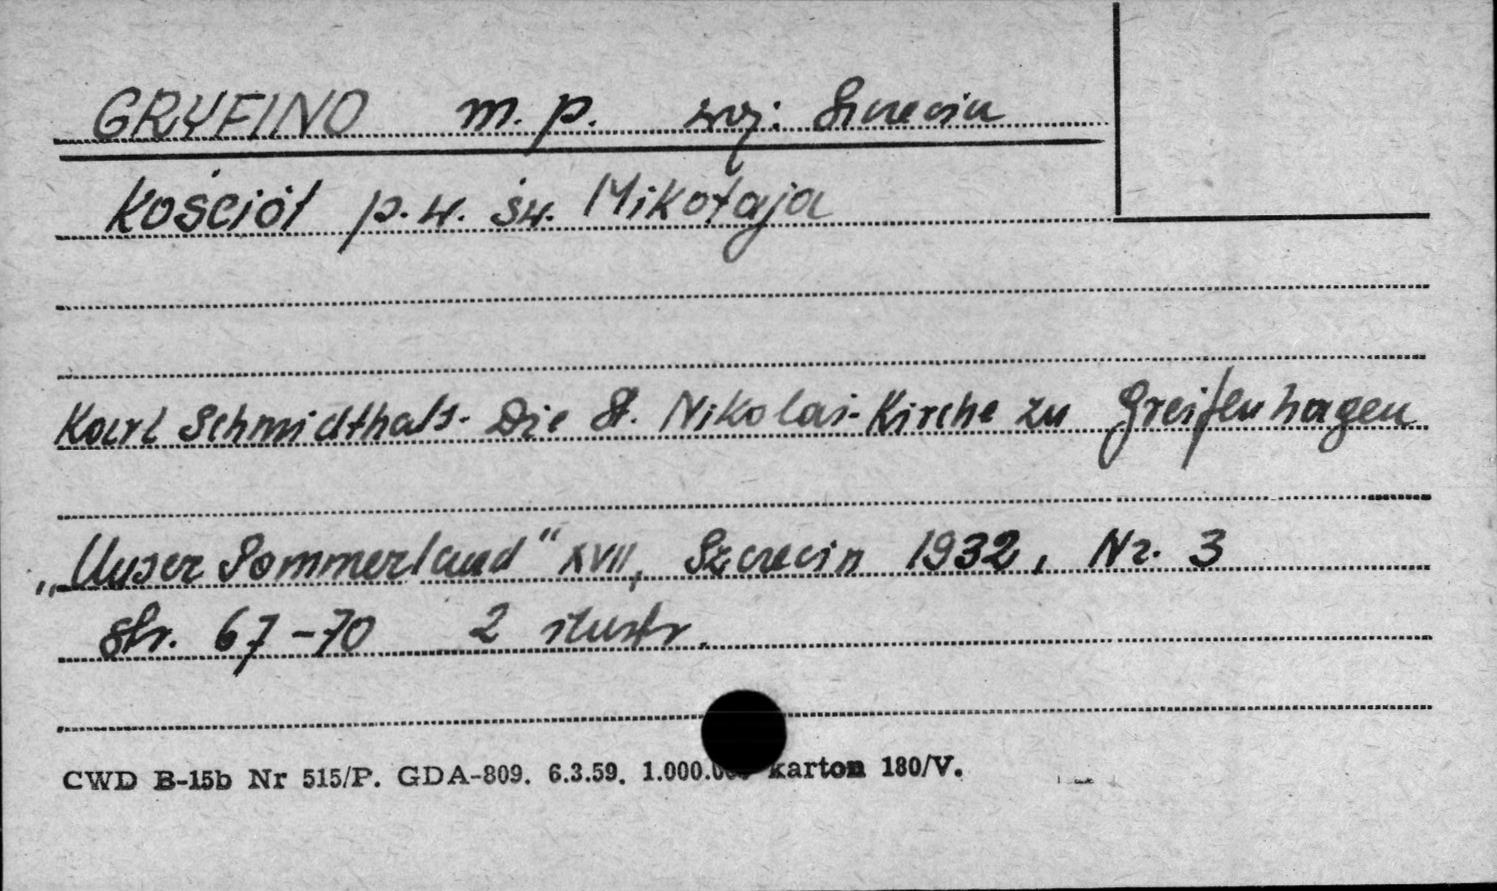 GRYFINO m. p. woj: Szczecin
Kościół p.w. św. Mikołaja
Karl Schmidthals. Die St. Nikolai-Kirche zu Greifenhagen
„Unser Pommerland" XVII, Szczecin 1932, Nr. 3
str. 67-70 2 ilustr.
CWD B-15b Nr 515/P. GDA-809. 6.3.59. karton 180/V.